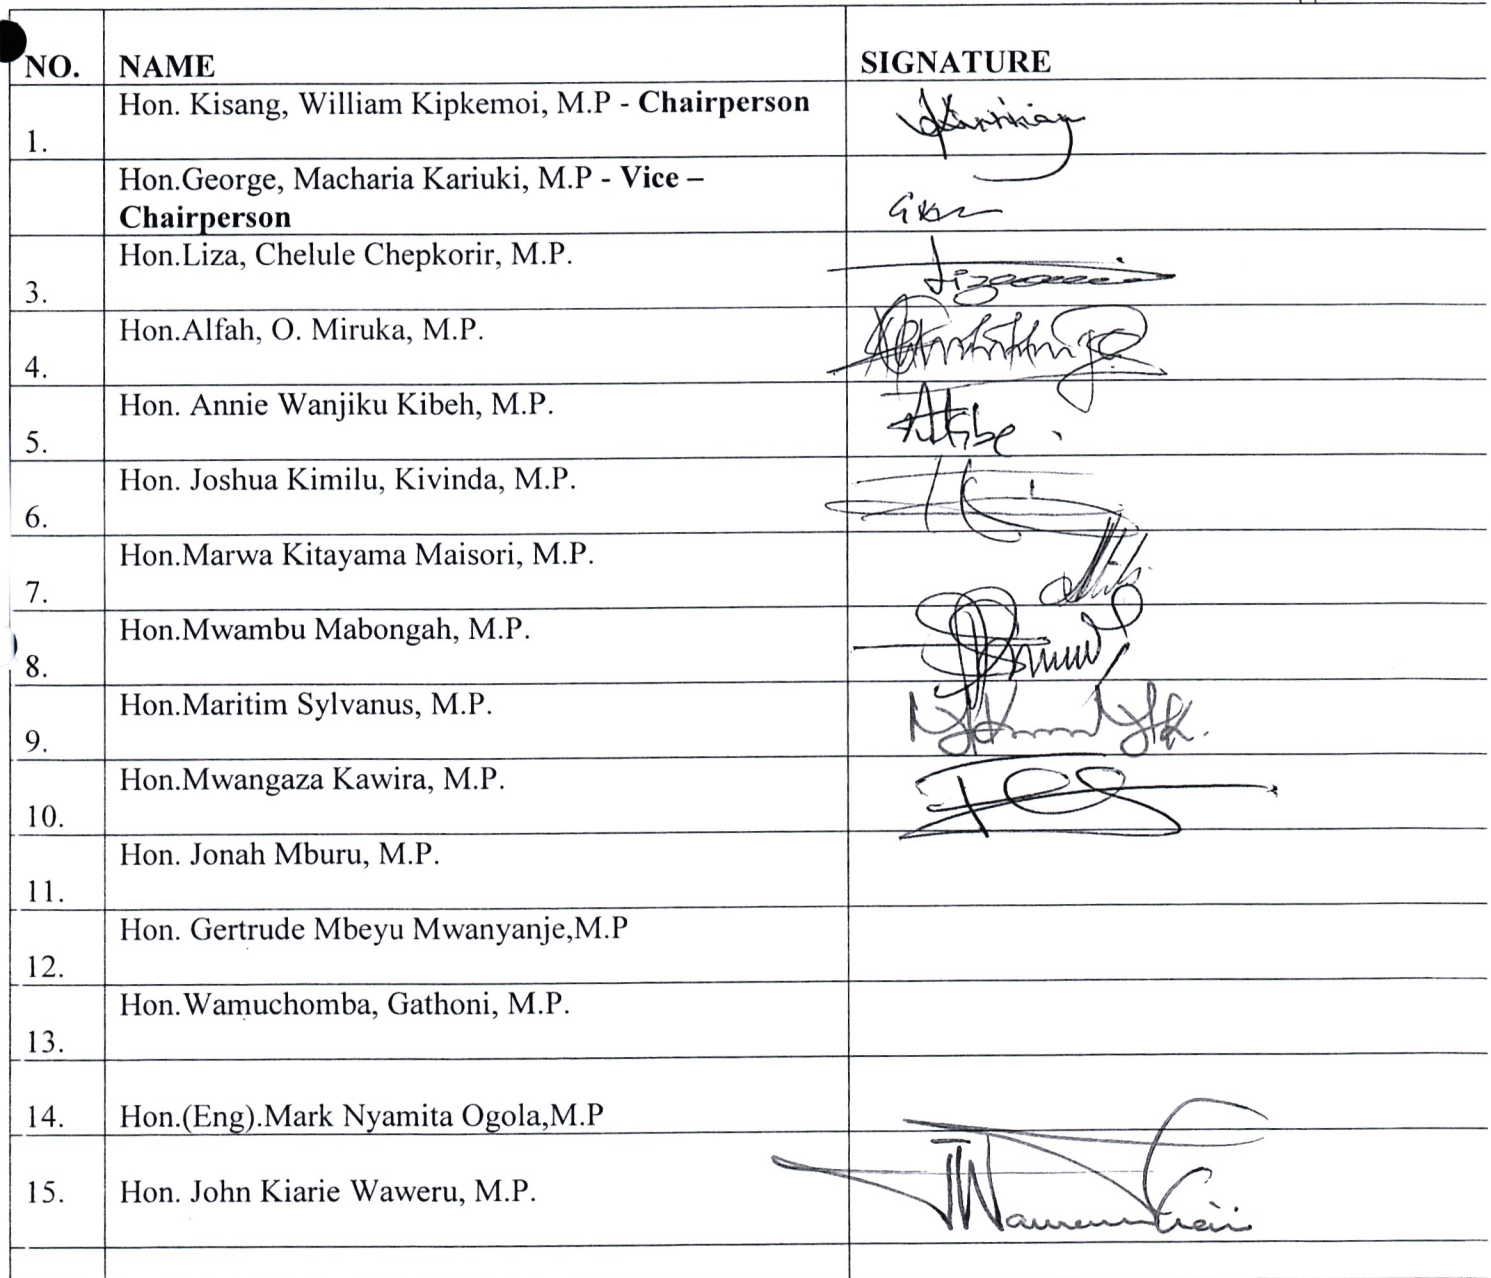 NO. NAME SIGNATURE
1. Hon. Kisang, William Kipkemoi, M.P - Chairperson
Hon.George, Macharia Kariuki, M.P - Vice –
Chairperson
3. Hon.Liza, Chelule Chepkorir, M.P.
4. Hon.Alfah, O. Miruka, M.P.
5. Hon. Annie Wanjiku Kibeh, M.P.
6. Hon. Joshua Kimilu, Kivinda, M.P.
7. Hon.Marwa Kitayama Maisori, M.P.
8. Hon.Mwambu Mabongah, M.P.
9. Hon.Maritim Sylvanus, M.P.
10. Hon.Mwangaza Kawira, M.P.
11. Hon. Jonah Mburu, M.P.
12. Hon. Gertrude Mbeyu Mwanyanje,M.P
13. Hon.Wamuchomba, Gathoni, M.P.
14. Hon.(Eng).Mark Nyamita Ogola,M.P
15. Hon. John Kiarie Waweru, M.P.